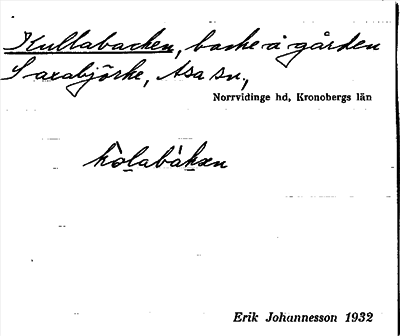 Kullabacken, backe å gården
Saxabjörke, Asa sn.,
Norrvidinge hd, Kronobergs län
kòlabàkæn
Erik Johannesson 1932